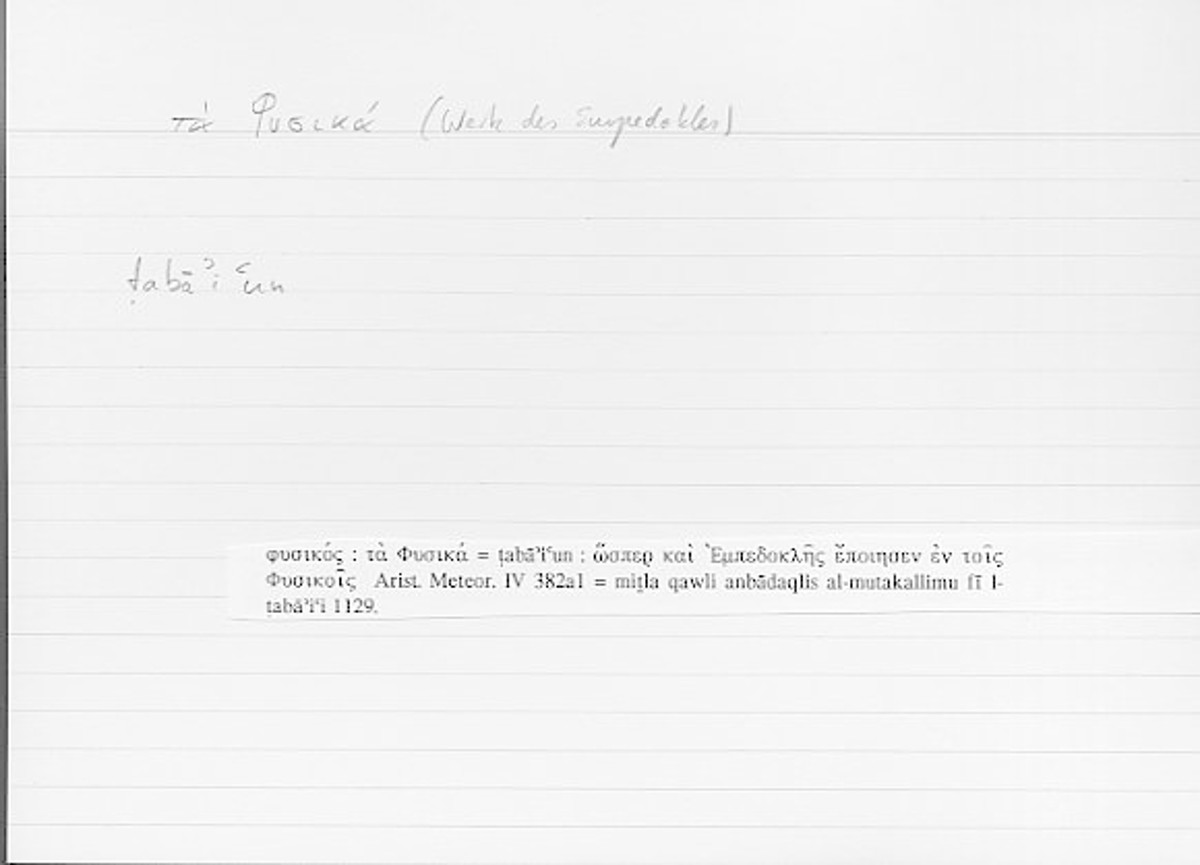 τὰ Φυσικά (Werk des Empedokles)
ṭabāʾiʿun
φυσικός : τὰ Φυσικά = ṭabāʾiʿun : ὥσπερ καὶ Ἐμπεδοκλῆς ἐποιησεν ἐν τοῖς
Φυσικοῖς Arist. Meteor. IV 382a1 = miṯla qawli anbādaqlis al-mutakallimu fī l-
ṭabāʾiʿi 1129.